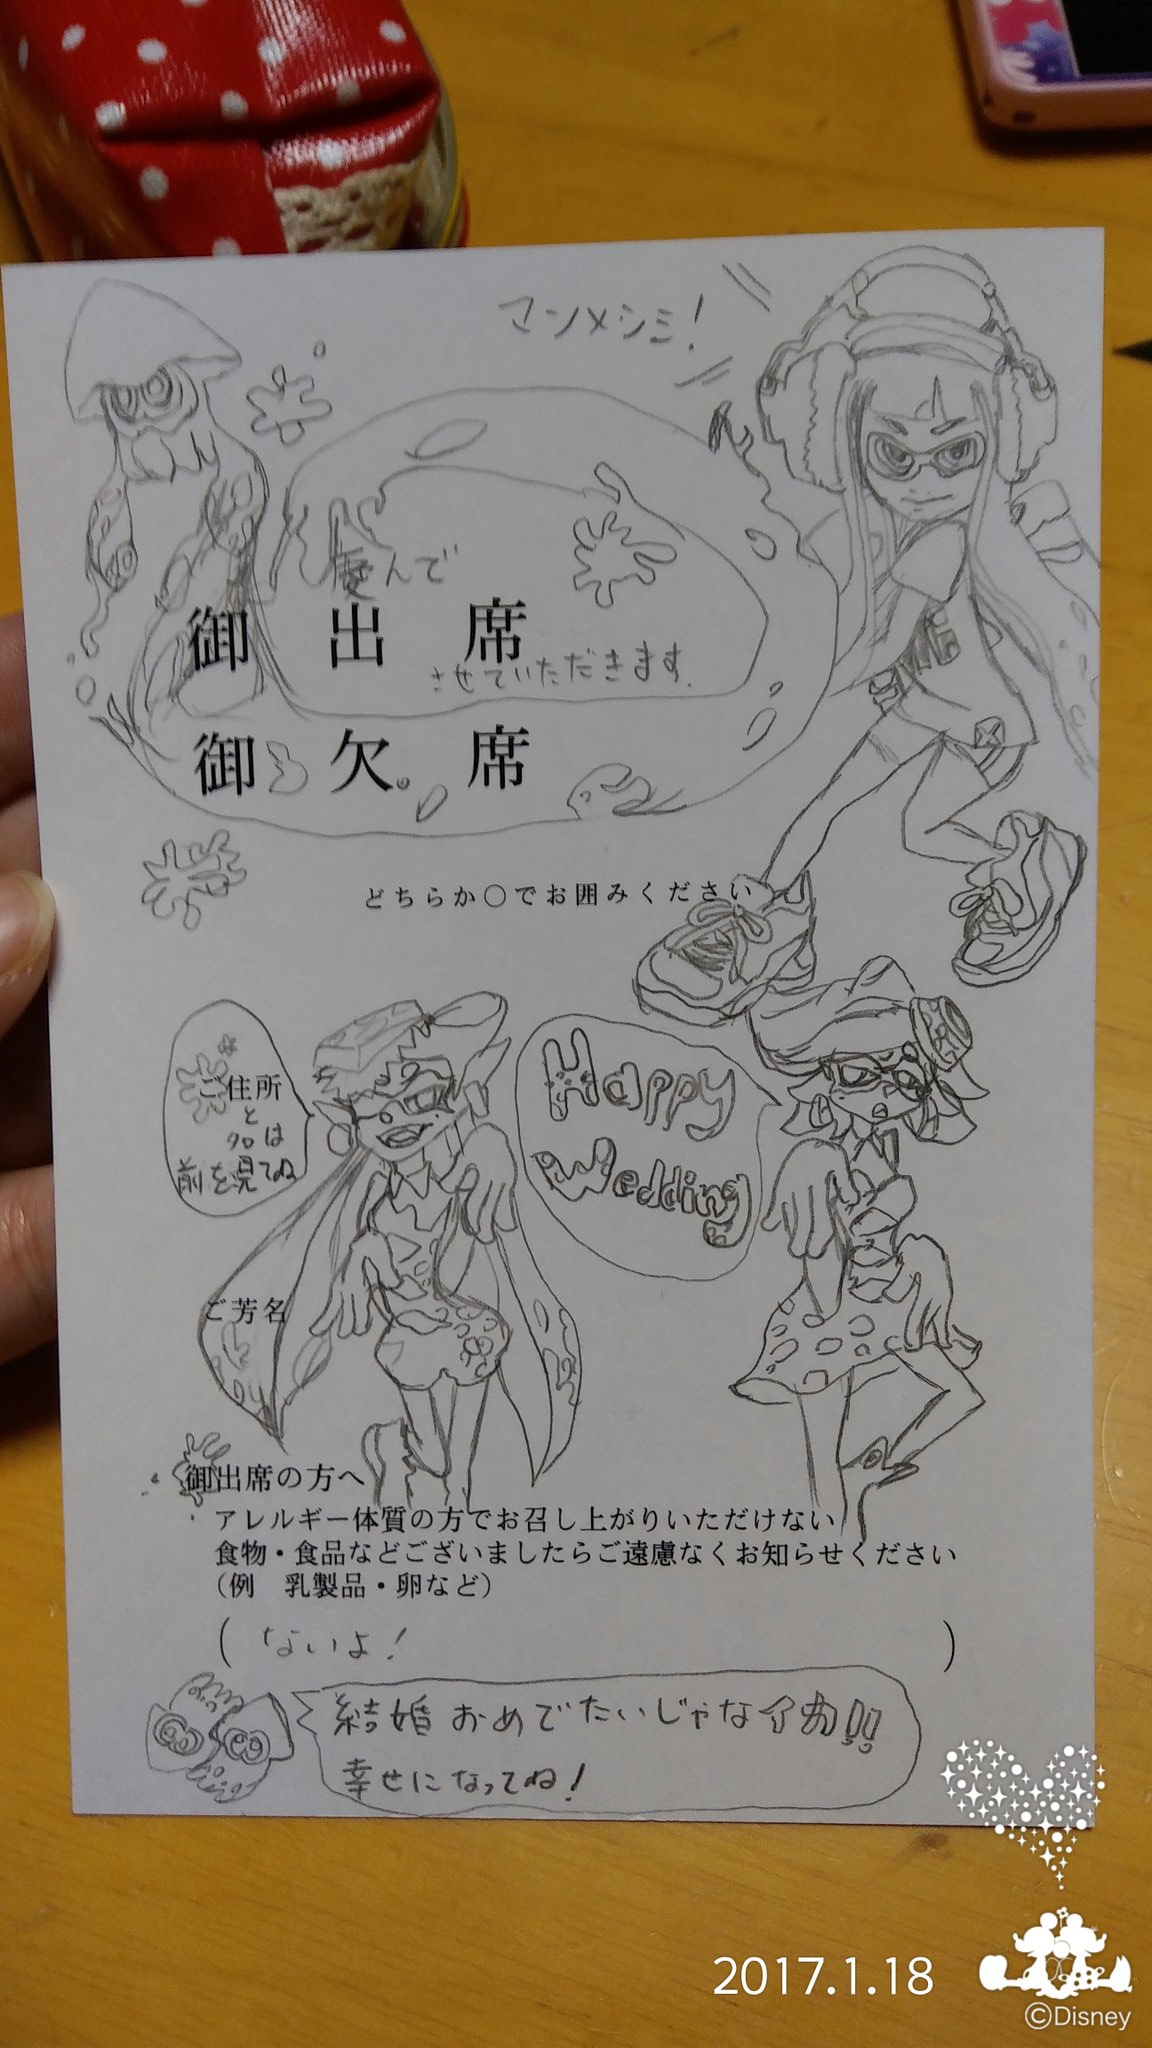 マンメンミ!
慶んで
御 出 席
させていただきます.
御 欠 席
どちらか○でお囲みください
ご住所
と
クロは
前を見てね
Happy
Wedding
ご芳名
御出席の方へ
アレルギー体質の方でお召し上がりいただけない
食物・食品などございましたらご遠慮なくお知らせください
(例 乳製品・卵など)
( ないよ! )
結婚おめでたいじゃなイカ!!
幸せになってね!
2017.1.18
©Disney